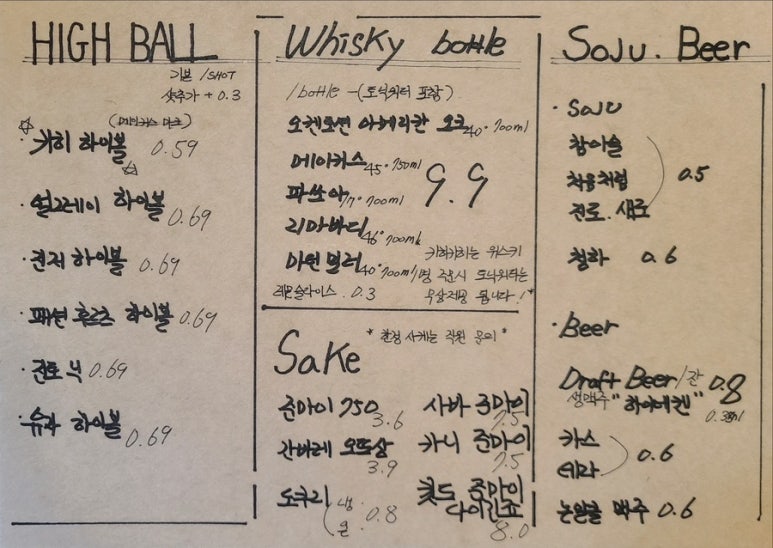 HIGH BALL
기본 1SHOT
샷추가 + 0.3
(메이커스 마크)
· 카히 하이볼 0.59
· 얼그레이 하이볼 0.69
· 진저 하이볼 0.69
· 패션 후르츠 하이볼 0.69
· 진토닉 0.69
· 유자 하이볼 0.69
Whisky bottle
1bottle -(토닉워터 포함)
오켄토션 아메리칸 오크 40° 700ml
메이커스 45° 750ml
파쓰아 17° 700ml
리마바디 46° 700ml
마틴 밀러 40° 700ml
9.9
카히카히는 위스키
1병 주문시 토닉워터는
무상제공 됩니다!*
레몬슬라이스 . 0.3
Sake
* 한정 사케는 직원 문의 *
준마이 750 3.6
간바레 오또상 3.9
도쿠리 냉 온 0.8
사바 준마이 7.5
카니 준마이 7.5
준마이
다이긴죠 8.0
Soju . Beer
· Soju
참이슬
처음처럼
진로 . 새로
0.5
청하 0.6
· Beer
Draft Beer/잔 0.8
생맥주 "하이네켄"
카스
테라
0.6
논알콜 맥주 0.6